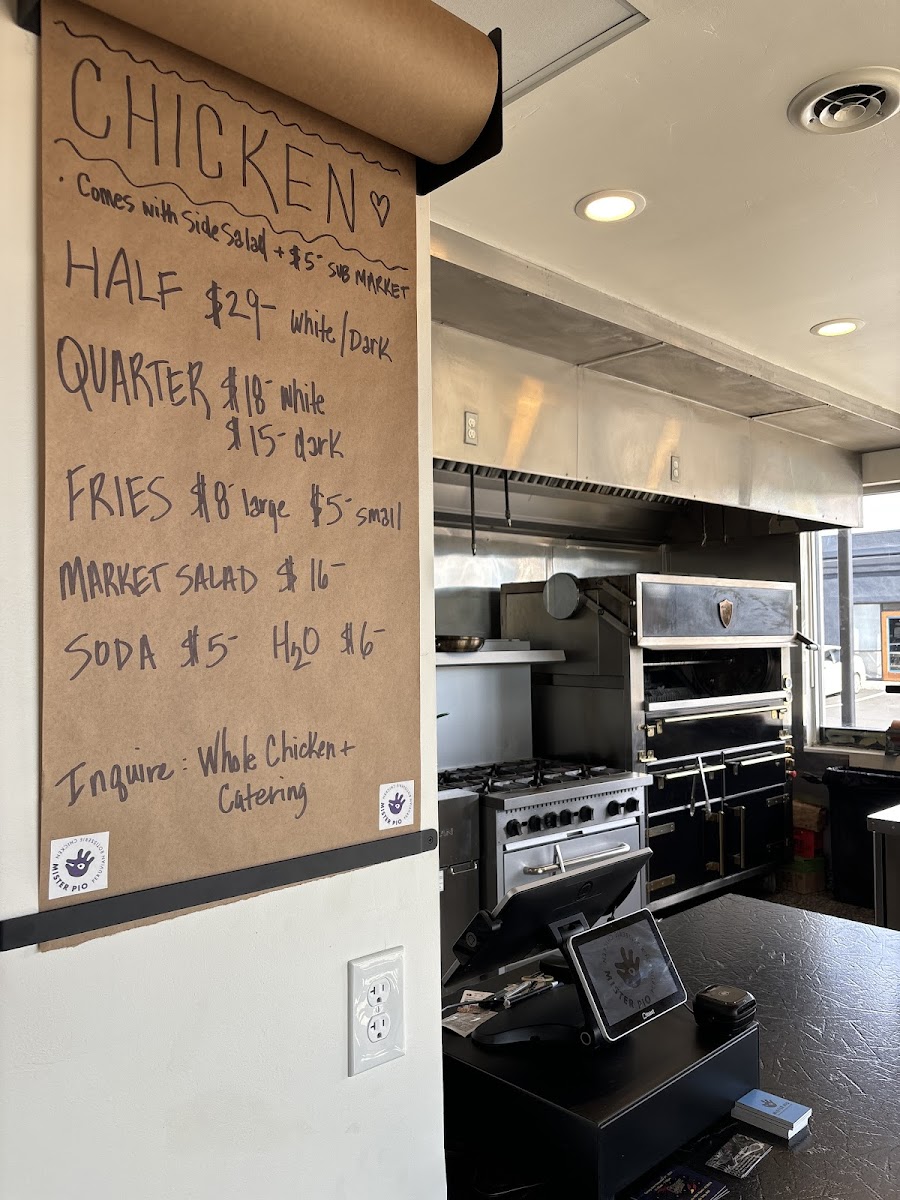 CHICKEN ♡
· Comes with Side Salad + $5- SUB MARKET
HALF $29- White/Dark
QUARTER $18- White
$15- dark
FRIES $8- large $5- small
MARKET SALAD $16-
SODA $5- H2O $6-
Inquire: Whole Chicken +
Catering
MISTER PIO
PERUVIAN ROTISSERIE CHICKEN
MISTER PIO
MISTER PIO